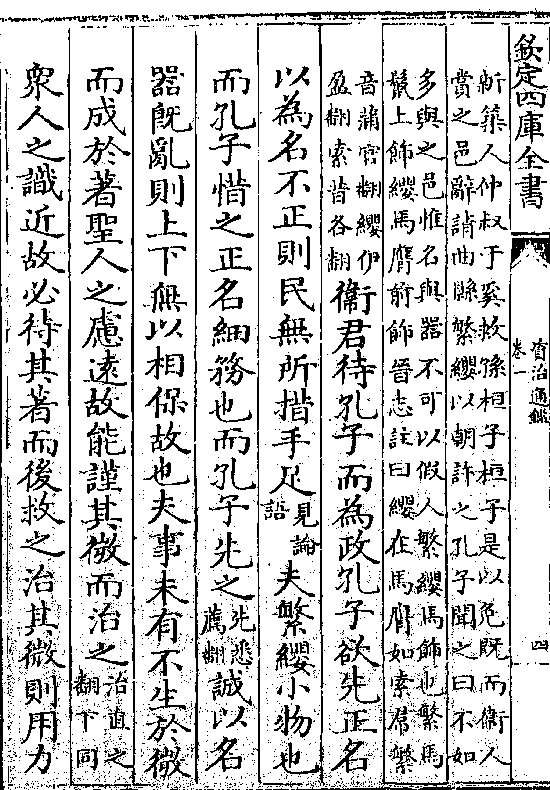 欽定四庫全書
資治通鑑
卷一
四
新築人仲叔于奚救孫桓子桓子是以免既而衛人
賞之邑辭請曲縣繁纓以朝許之孔子聞之曰不如
多與之邑惟名與器不可以假人繁纓馬飾也繁馬
鬛上飾纓馬膺前飾晉志註曰纓在馬膺如索帬繁
音蒲官翻纓伊盈翻索昔各翻衛君待孔子而為政孔子欲先正名
以為名不正則民無所措手足見論語夫繁纓小物也
而孔子惜之正名細務也而孔子先之先悉薦翻誠以名
器既亂則上下無以相保故也夫事未有不生於微
而成於著聖人之慮遠故能謹其微而治之治直之翻下同
衆人之識近故必待其著而後救之治其微則用力